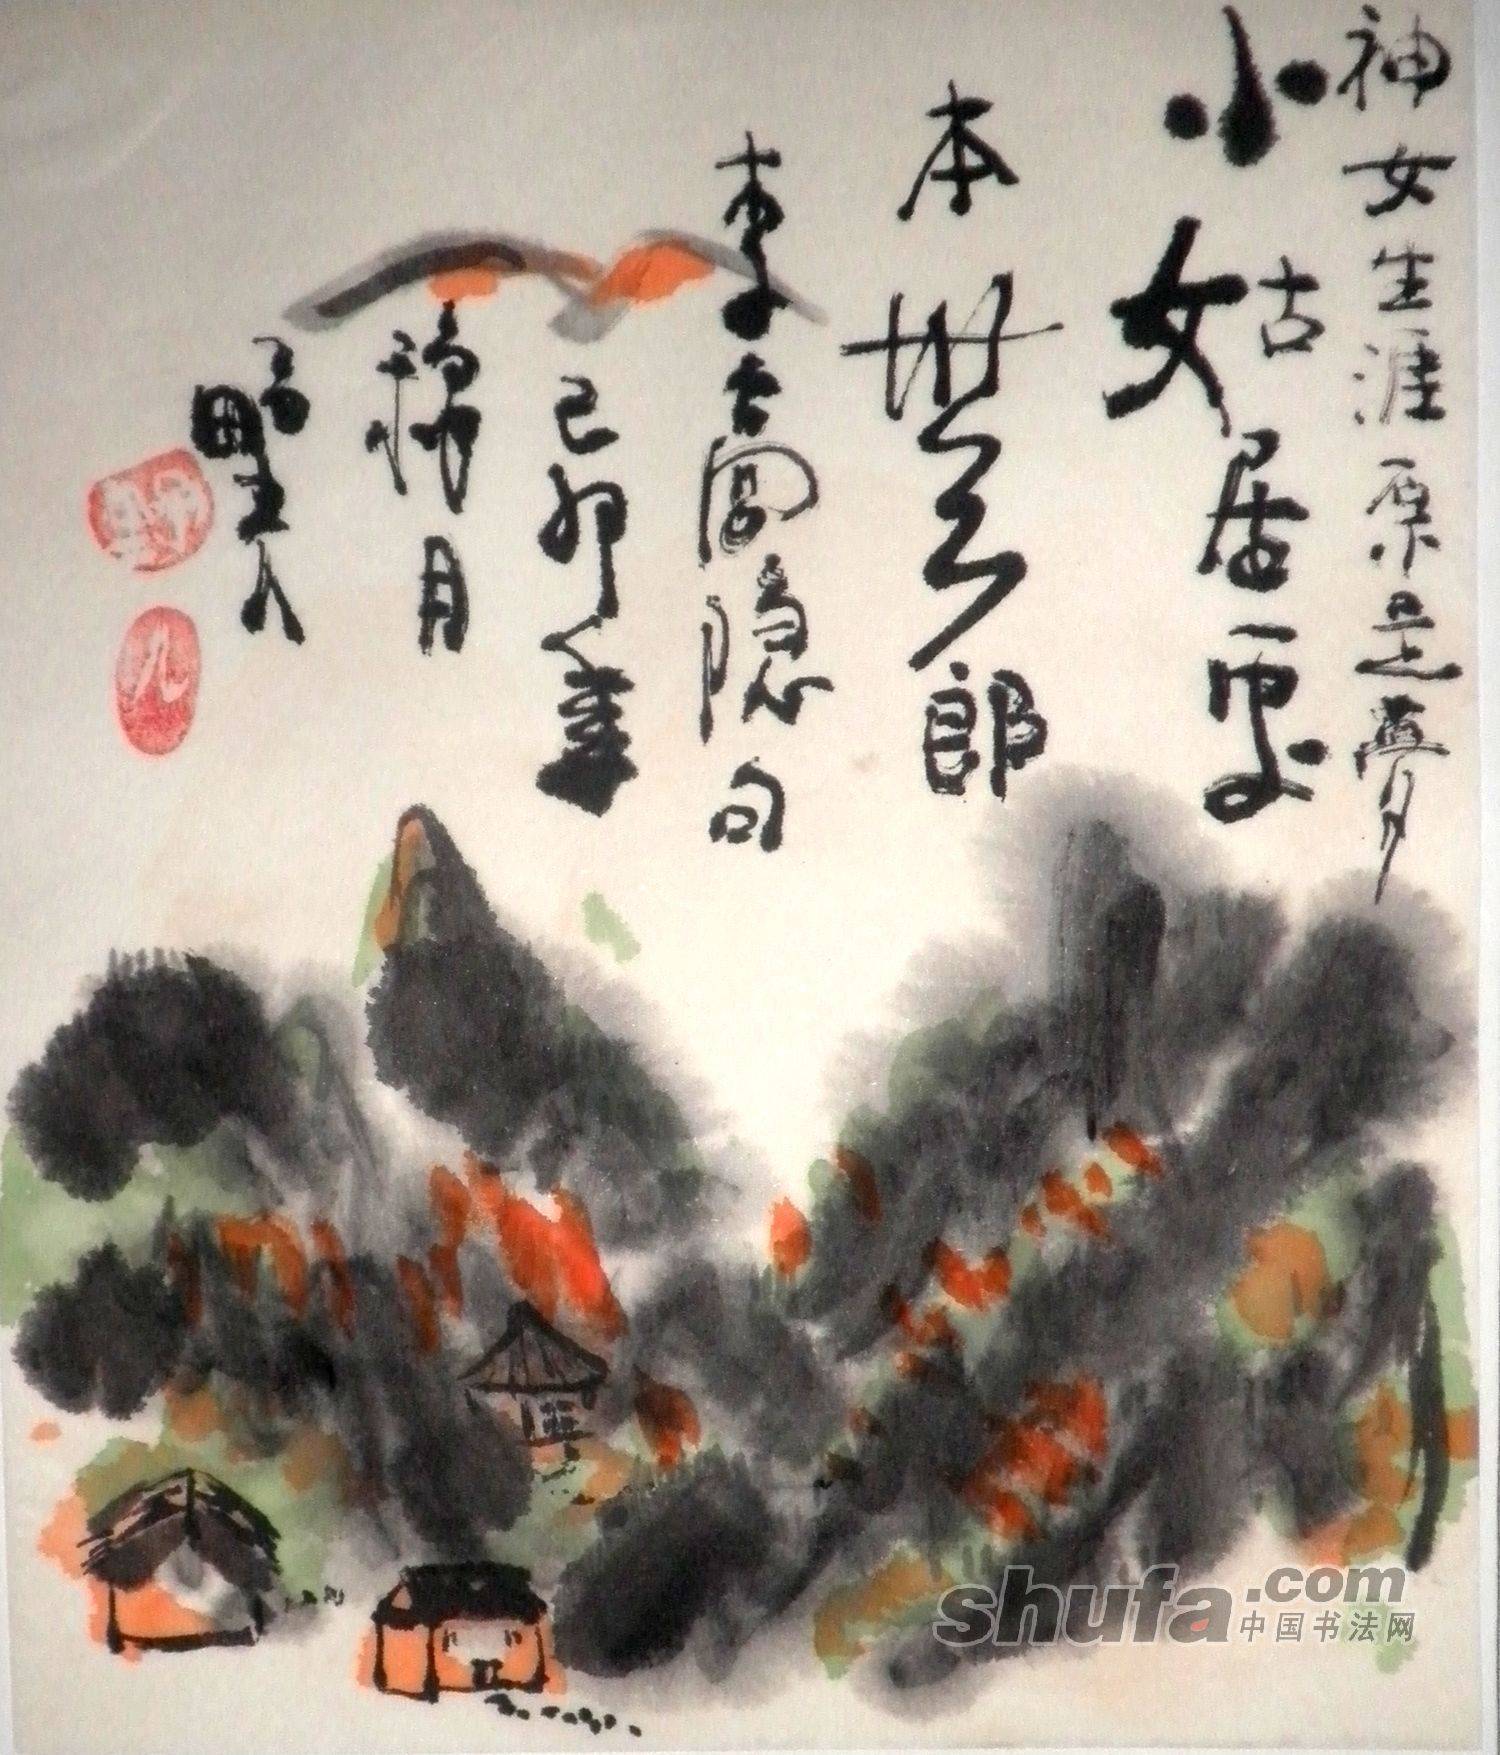 神女生涯原是夢
小姑居處
本無郎
李商隐句
己卯年
月
野人
shufa.com
中国书法网